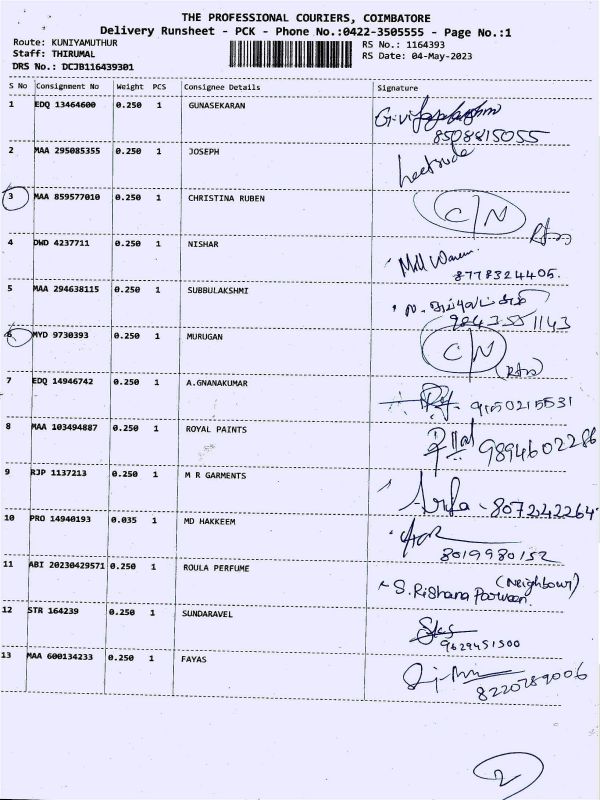 THE PROFESSIONAL COURIERS, COIMBATORE
Delivery Runsheet - PCK - Phone No.:0422-3505555 - Page No.:1
Route: KUNIYAMUTHUR
RS No.: 1164393
Staff: THIRUMAL
RS Date: 04-May-2023
DRS No.: DCJB116439301
S No Consignment No Weight PCS Consignee Details Signature
1 EDQ 13464600 0.250 1 GUNASEKARAN
8508815055
2 MAA 295085355 0.250 1 JOSEPH
3 MAA 859577010 0.250 1 CHRISTINA RUBEN C/N
4 DWD 4237711 0.250 1 NISHAR
8778324405.
5 MAA 294638115 0.250 1 SUBBULAKSHMI
9843551143
6 MYD 9730393 0.250 1 MURUGAN C/N
7 EDQ 14946742 0.250 1 A.GNANAKUMAR 9150215531
8 MAA 103494887 0.250 1 ROYAL PAINTS 9894602286
9 RJP 1137213 0.250 1 M R GARMENTS Arifa - 8072242264
10 PRO 14940193 0.035 1 MD HAKKEEM
8019980152
11 ABI 20230429571 0.250 1 ROULA PERFUME (Neighbour)
S. Rishana Parveen.
12 STR 164239 0.250 1 SUNDARAVEL
9629451500
13 MAA 600134233 0.250 1 FAYAS
8220789006
2